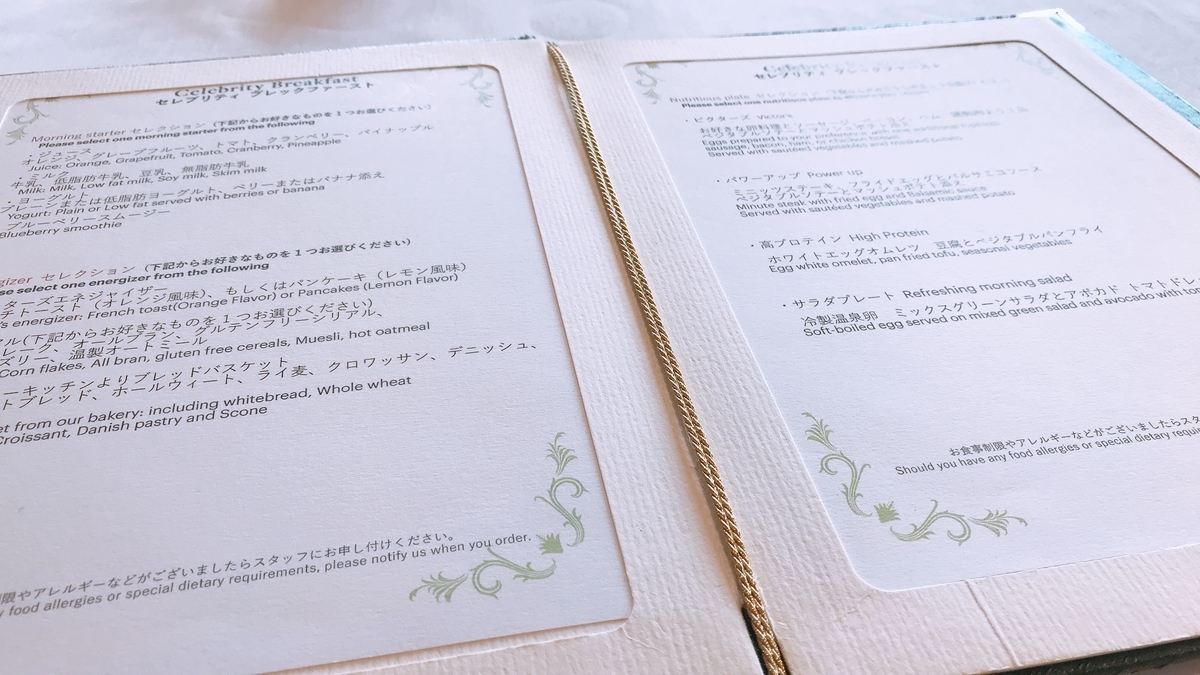 Celebrity Breakfast
セレブリティ ブレックファースト
Morning starter セレクション (下記からお好きなものを1つお選びください)
Please select one morning starter from the following
・ジュース
オレンジ、グレープフルーツ、トマト、クランベリー、パイナップル
Juice: Orange, Grapefruit, Tomato, Cranberry, Pineapple
・ミルク
牛乳、低脂肪牛乳、豆乳、無脂肪牛乳
Milk: Milk, Low fat milk, Soy milk, Skim milk
ヨーグルト
プレーンまたは低脂肪ヨーグルト、ベリーまたはバナナ添え
Yogurt: Plain or Low fat served with berries or banana
ブルーベリースムージー
Blueberry smoothie
gizer セレクション (下記からお好きなものを1つお選びください)
se select one energizer from the following
ターズエネジャイザー
チトースト (オレンジ風味)、もしくはパンケーキ (レモン風味)
's energizer: French toast(Orange Flavor) or Pancakes (Lemon Flavor)
アル(下記からお好きなものを1つお選びください)
レーク、オールブラン、グルテンフリーシリアル、
ズリー、温製オートミール
Corn flakes, All bran, gluten free cereals, Muesli, hot oatmeal
ーキッチンよりブレッドバスケット
トブレッド、ホールウィート、ライ麦、クロワッサン、デニッシュ、
et from our bakery: including whitebread, Whole wheat
Croissant, Danish pastry and Scone
限やアレルギーなどがございましたらスタッフにお申し付けください。
y food allergies or special dietary requirements, please notify us when you order.
Celebrity Breakfast
セレブリティ ブレックファースト
Nutritious plate セレクション
Please select one nutritious plate
・ビクターズ Victors
お好きな卵料理とソーセージ、ベーコン、ハム
ベジタブルソテーとマッシュポテト添え
Eggs prepared to your
sausage, bacon, ham, or
Served with sautéed vegetables and mashed potato
・パワーアップ Power up
ミニッツステーキ、フライドエッグとバルサミコソース
ベジタブルソテーとマッシュポテト添え
Minute steak with fried egg and Balsamic sauce
Served with sautéed vegetables and mashed potato
・高プロテイン High Protein
ホワイトエッグオムレツ 豆腐とベジタブルパンフライ
Egg white omelet, pan fried tofu, seasonal vegetables
・サラダプレート Refreshing morning salad
冷製温泉卵 ミックスグリーンサラダとアボカド トマトドレ
Soft-boiled egg served on mixed green salad and avocado with tom
お食事制限やアレルギーなどがございましたらスタ
Should you have any food allergies or special dietary requi